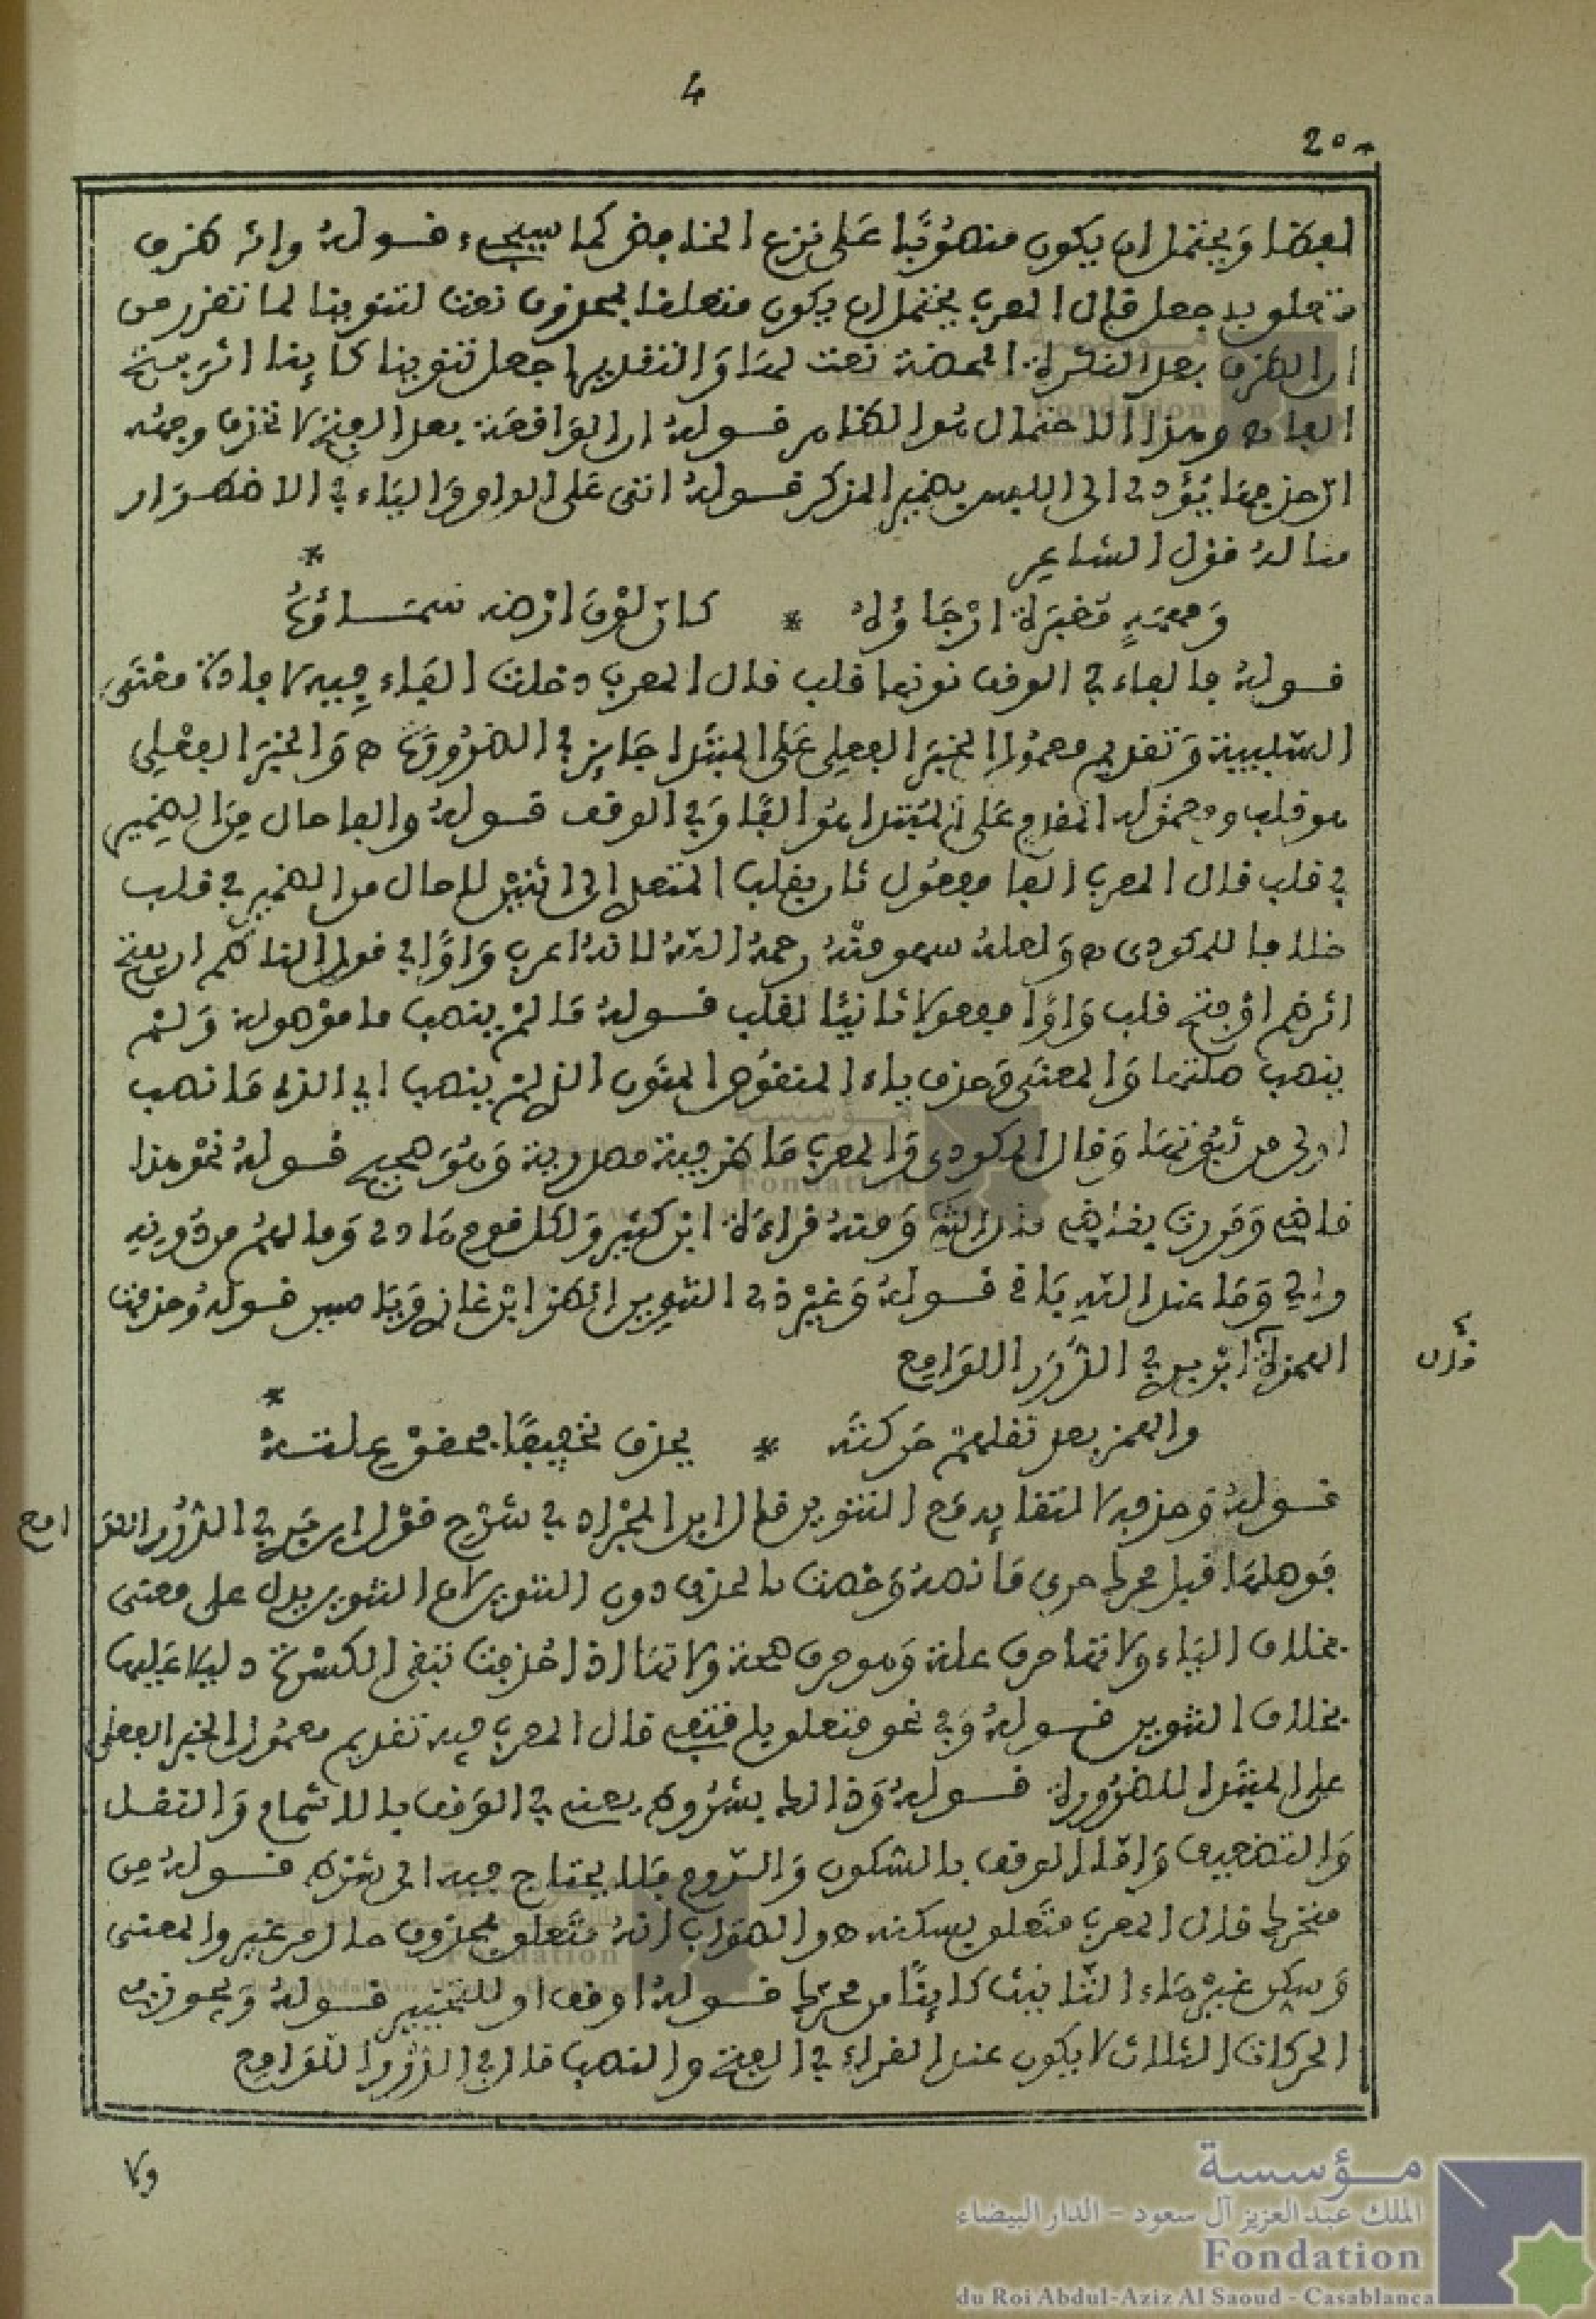 4
20
لبعضا ويحتمل ان يكون منصوبا على نزع الخافض كما سيجيء قوله واثر ظرف
متعلق بد جعل قال المعرب يحتمل ان يكون متعلقا بمحذوف نعت لتنوينا لما تقرر من
ان الظرف بعد النكرة المحضة نعت لها والتقدير اجعل تنوينا كاينا اثر فتح
الفا ه وهذا الاحتمال هو الظاهر قوله ان الواقعة بعد الفتح لا تحذف وجهه
ان حذفها يؤدي الى اللبس بضمير المذكر قوله انثى على الواو والياء في الاضطرار
مثاله قول الشاعر
ومهمه مغبرة ارجاؤه * كان لون ارضه سماؤه
قوله فالفاء في الوقف نونها قلب قال المعرب دخلت الفاء فيه لافادة معنى
السببية وتقديم معمول الخبر الفعلي على المبتدا جايز في الضرورة ه والخبر الفعلي
هو قلب ومعموله المقدم على المبتدا هو الفا وفي الوقف قوله والفا حال من الضمير
في قلب قال المعرب الفا مفعول ثان بقلب المتعدي الى اثنين لا حال من الضمير في قلب
خلافا للمكودي ه ولعله سهو منه رحمه الله لانه اعرب واوا في قول الناظم ان يفتح
اثر ضم او فتح قلب واوا مفعولا ثانيا لقلب قوله ما لم ينصب ما موصولة ولم
ينصب صلتها والمعنى وحذف ياء المنقوص المنون الذي لم ينصب اي الذي ما نصب
اولى من ثبوتها وقال المكودي والمعرب ما ظرفية مصدرية وهو صحيح قوله نحو هذا
قاضي ومررت بقاضي ومنه قراءة ابن كثير ولكل قوم هادي وما لهم من دونه من
والي وما عند الله باقي قوله وغير ذي التنوين انظر ابن غازي وياسين قوله وحذفت
الهمزة ابن بري في الدرر اللوامع
والهمز بعد نقلهم حركته * يحذف تخفيفا فحقق علته
قوله وحذفه لالتقايه مع التنوين قال ابن المجراد في شرح قول ابن بري في الدرر اللوامع
فوصلها قبل محرك حري ما نصه وخصت بالحذف دون التنوين لان التنوين يدل على معنى
بخلاف الياء ولانها حرف علة وهو حرف صحة ولانها اذا حذفت تبقى الكسرة دليلا عليها
بخلاف التنوين قوله وفي نحو متعلق باقتفي قال المعرب فيه تقديم معمول الخبر الفعلي
على المبتدا للضرورة قوله وذالك بشروط يعني في الوقف بالاشمام والنقل
والتضعيف واما الوقف بالسكون والروم فلا يحتاج فيه الى شرط قوله من
محرك قال المعرب متعلق بسكنه ه والصواب انه متعلق بمحذوف حال من غير والمعنى
وسكن غير هاء التانيث كاينا من محرك قوله او قف او للتخيير قوله ويجوز في
الحركات الثلاث لا يكون عند القراء في الفتح والنصب قال في الدرر اللوامع
قال
ولا
مؤسسة
الملك عبد العزيز آل سعود - الدار البيضاء
Fondation
du Roi Abdul-Aziz Al Saoud - Casablanca